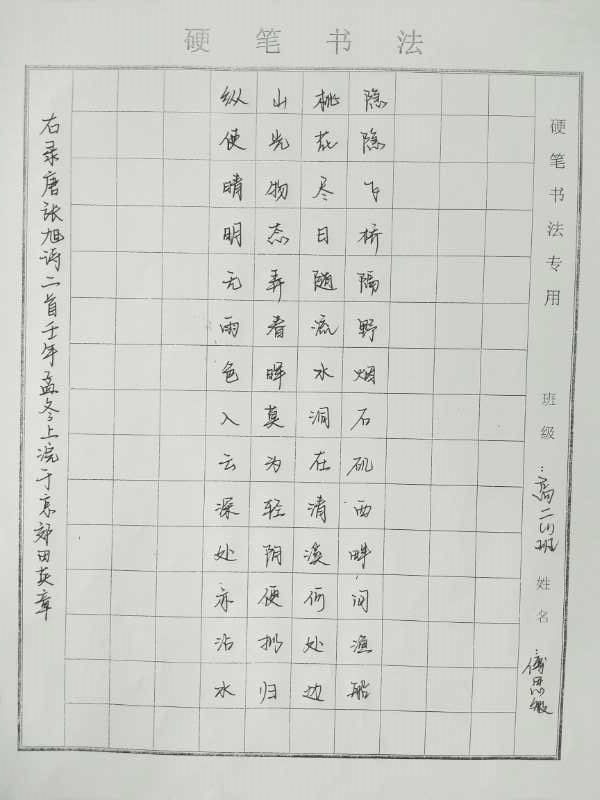 硬笔书法
硬笔书法专用
班级：高二(1)班
姓名：
隐隐飞桥隔野烟石矶西畔问渔船
桃花尽日随流水洞在清溪何处边
山光物态弄春晖莫为轻阴便拟归
纵使晴明无雨色入云深处亦沾水
右录唐张旭诗二首壬年孟冬上浣于京郊田英章